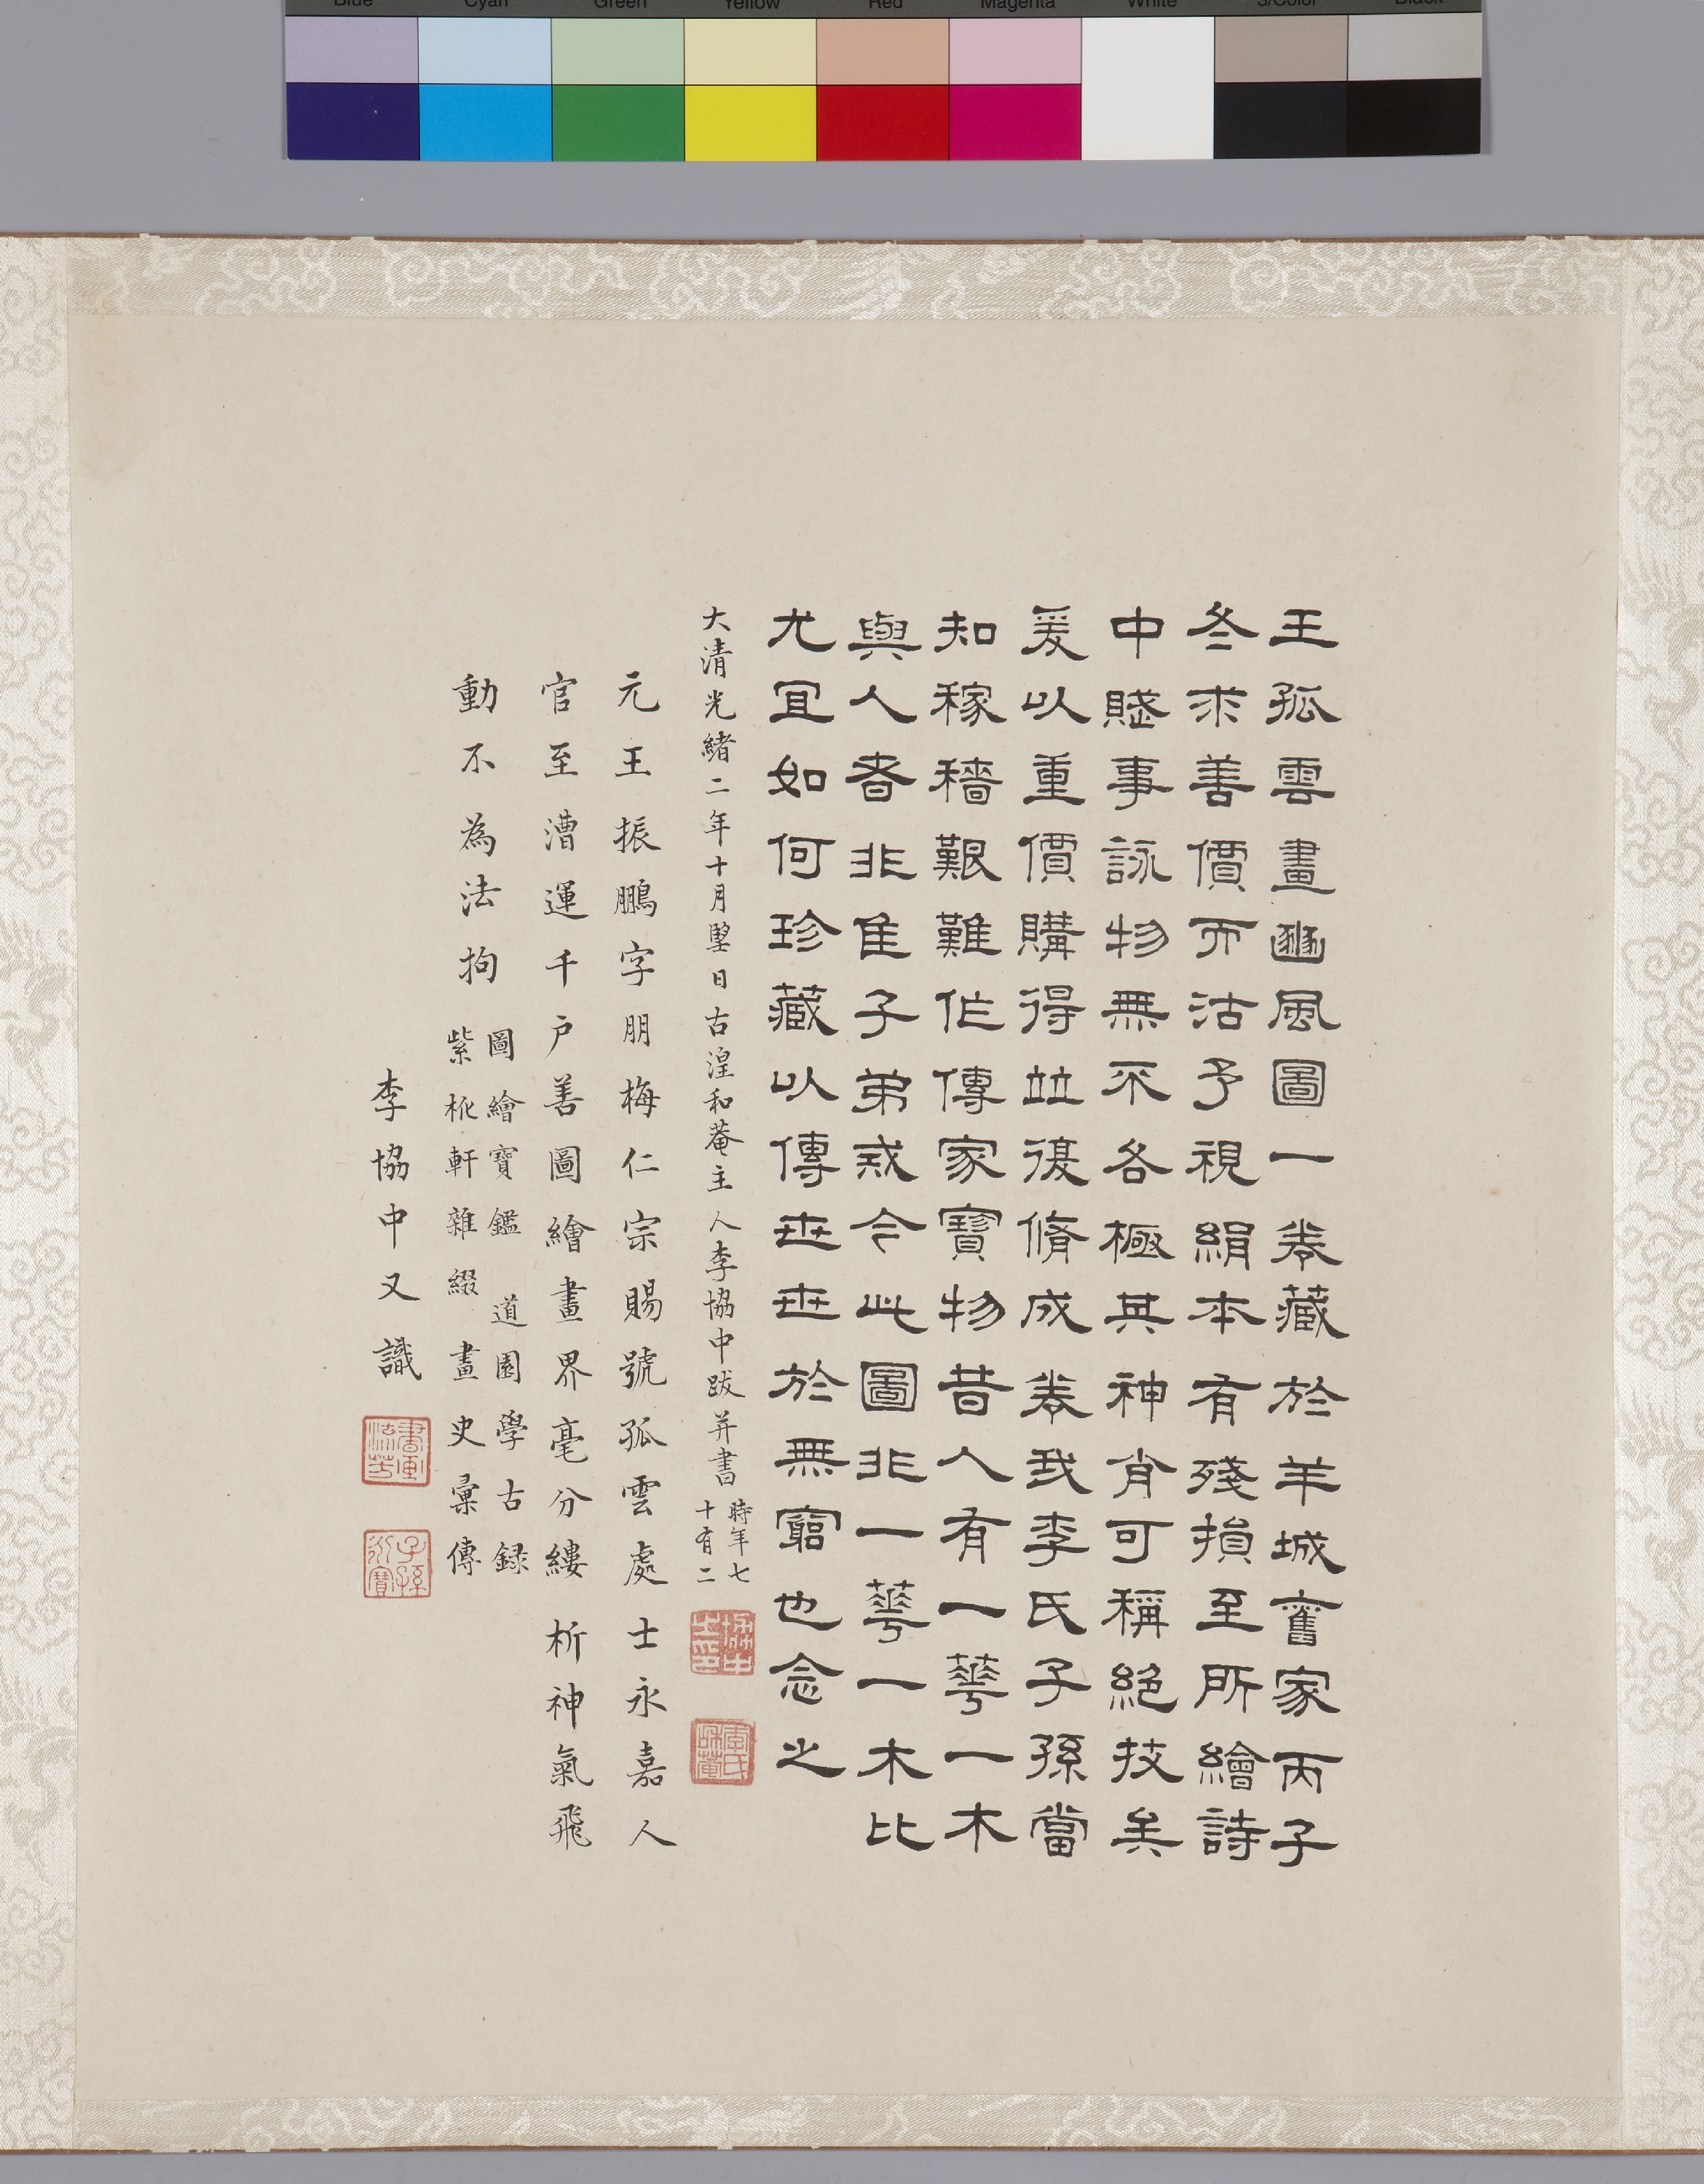 Blue Cyan Green Yellow Red Magenta White 3/Color Black
王孤雲畫豳風圖一卷藏於羊城舊家丙子
冬求善價而沽予視絹本有殘損至所繪詩
中賤事詠物無不各極其神肖可稱絕技矣
爰以重價購得竝復脩成卷我李氏子孫當
知稼穡艱難作傳家寶物昔人有一蕚一木
與人者非佳子弟戒今此圖非一蕚一木比
尤宜如何珍藏以傳世世於無窮也念之
大清光緒二年十月塱日古湟和菴主人李協中跋并書 時年七十有二
協中
之印
李氏
和菴
元王振鵬字朋梅仁宗賜號孤雲處士永嘉人
官至漕運千户善圖繪畫界毫分縷析神氣飛
動不為法拘
圖繪寶鑑 道園學古録
紫桃軒雜綴 畫史彙傳
李協中又識
書画
流芳
子孫
永寶